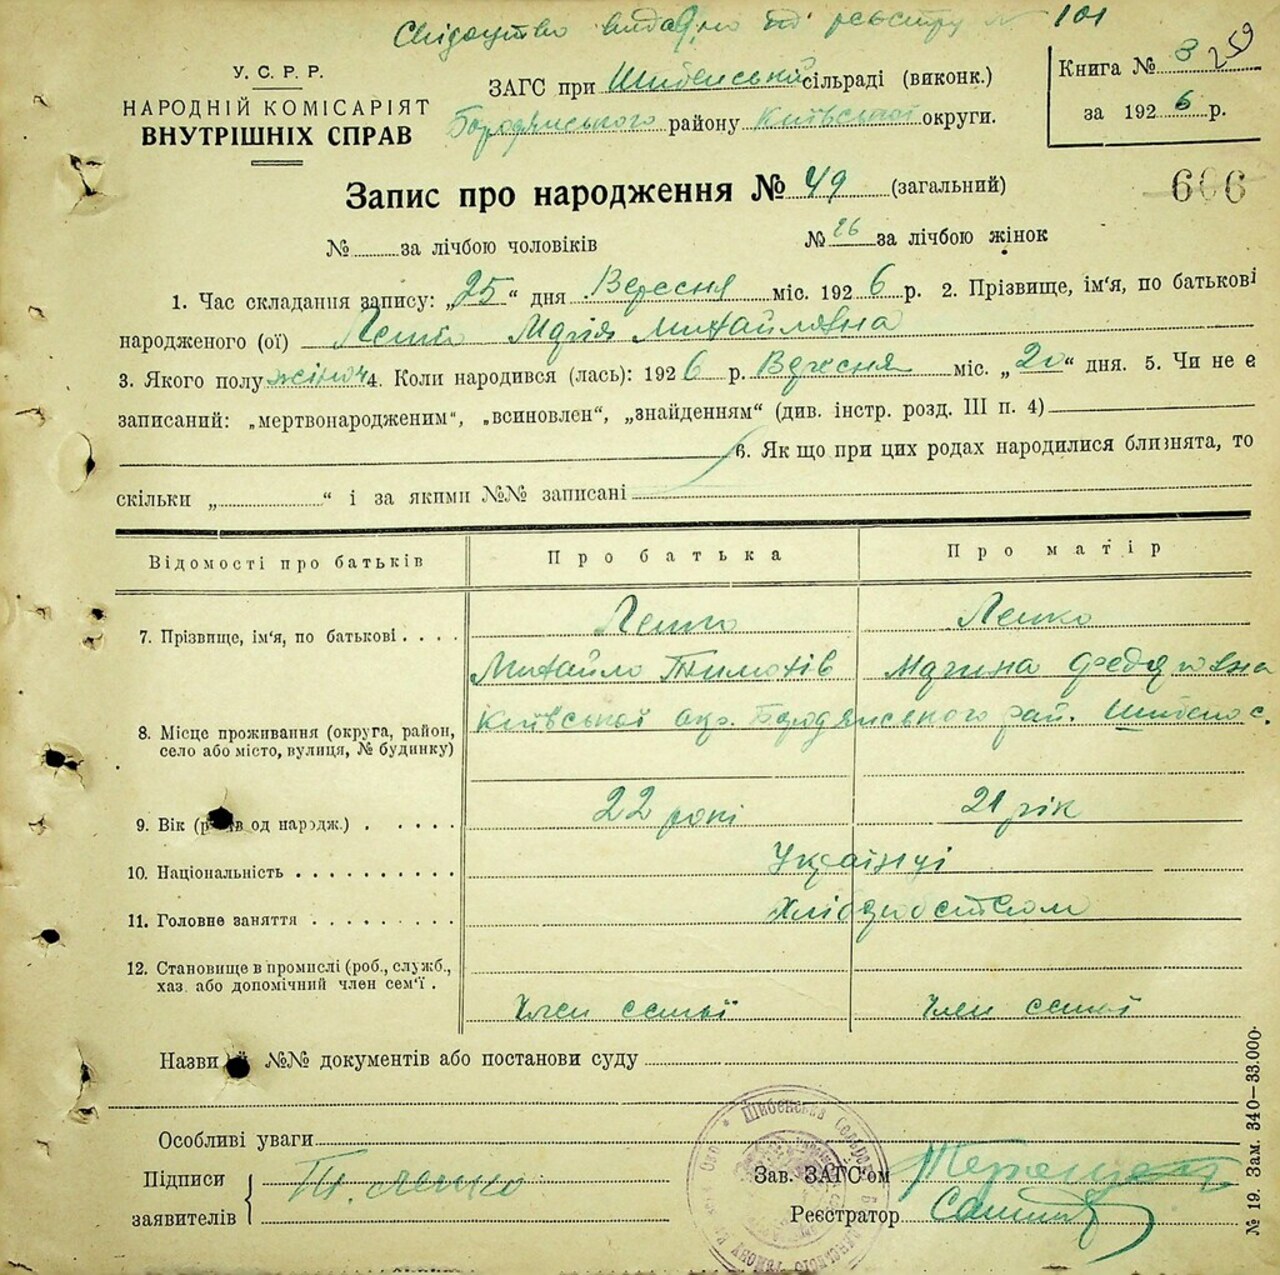 Свідоцтво видано по реєстру № 101
У. С. Р. Р.
НАРОДНІЙ КОМІСАРІЯТ
ВНУТРІШНІХ СПРАВ
ЗАГС при Шибенській сільраді (виконк.)
Бородянського району Київської округи.
Книга № 3 259
за 1926 р.
Запис про народження № 49 (загальний)
666
№ за лічбою чоловіків № 26 за лічбою жінок
1. Час складання запису: „25“ дня Вересня міс. 1926 р. 2. Прізвище, ім'я, по батькові
народженого (ої) Марія Михайлівна
3. Якого полу жіноч 4. Коли народився (лась): 1926 р. Вересня міс. „20“ дня. 5. Чи не є
записаний: „мертвонародженим“, „всиновлен“, „знайденням“ (див. інстр. розд. III п. 4)
6. Як що при цих родах народилися близнята, то
скільки „ “ і за якими №№ записані
Відомості про батьків Про батька Про матір
7. Прізвище, ім'я, по батькові . . . . Лешко Лешко
Михайло Тимохів Федорівна
8. Місце проживання (округа, район,
село або місто, вулиця, № будинку)
Київської окр. Бородянського рай. Шибено с.
9. Вік (років од народж.) . . . . . 22 роки 21 рік
10. Національність . . . . . . . . . . Українці
11. Головне заняття . . . . . . . . Хліборобством
12. Становище в промислі (роб., служб.,
хаз. або допомічний член сем'ї .
Член семьї Член семьї
Назви й №№ документів або постанови суду
Особливі уваги
Підписи
заявителів
Т. Лешко
Зав. ЗАГС'ом
Реєстратор
Шибенська Сільрада
№ 19. Зам. 340—33.000.